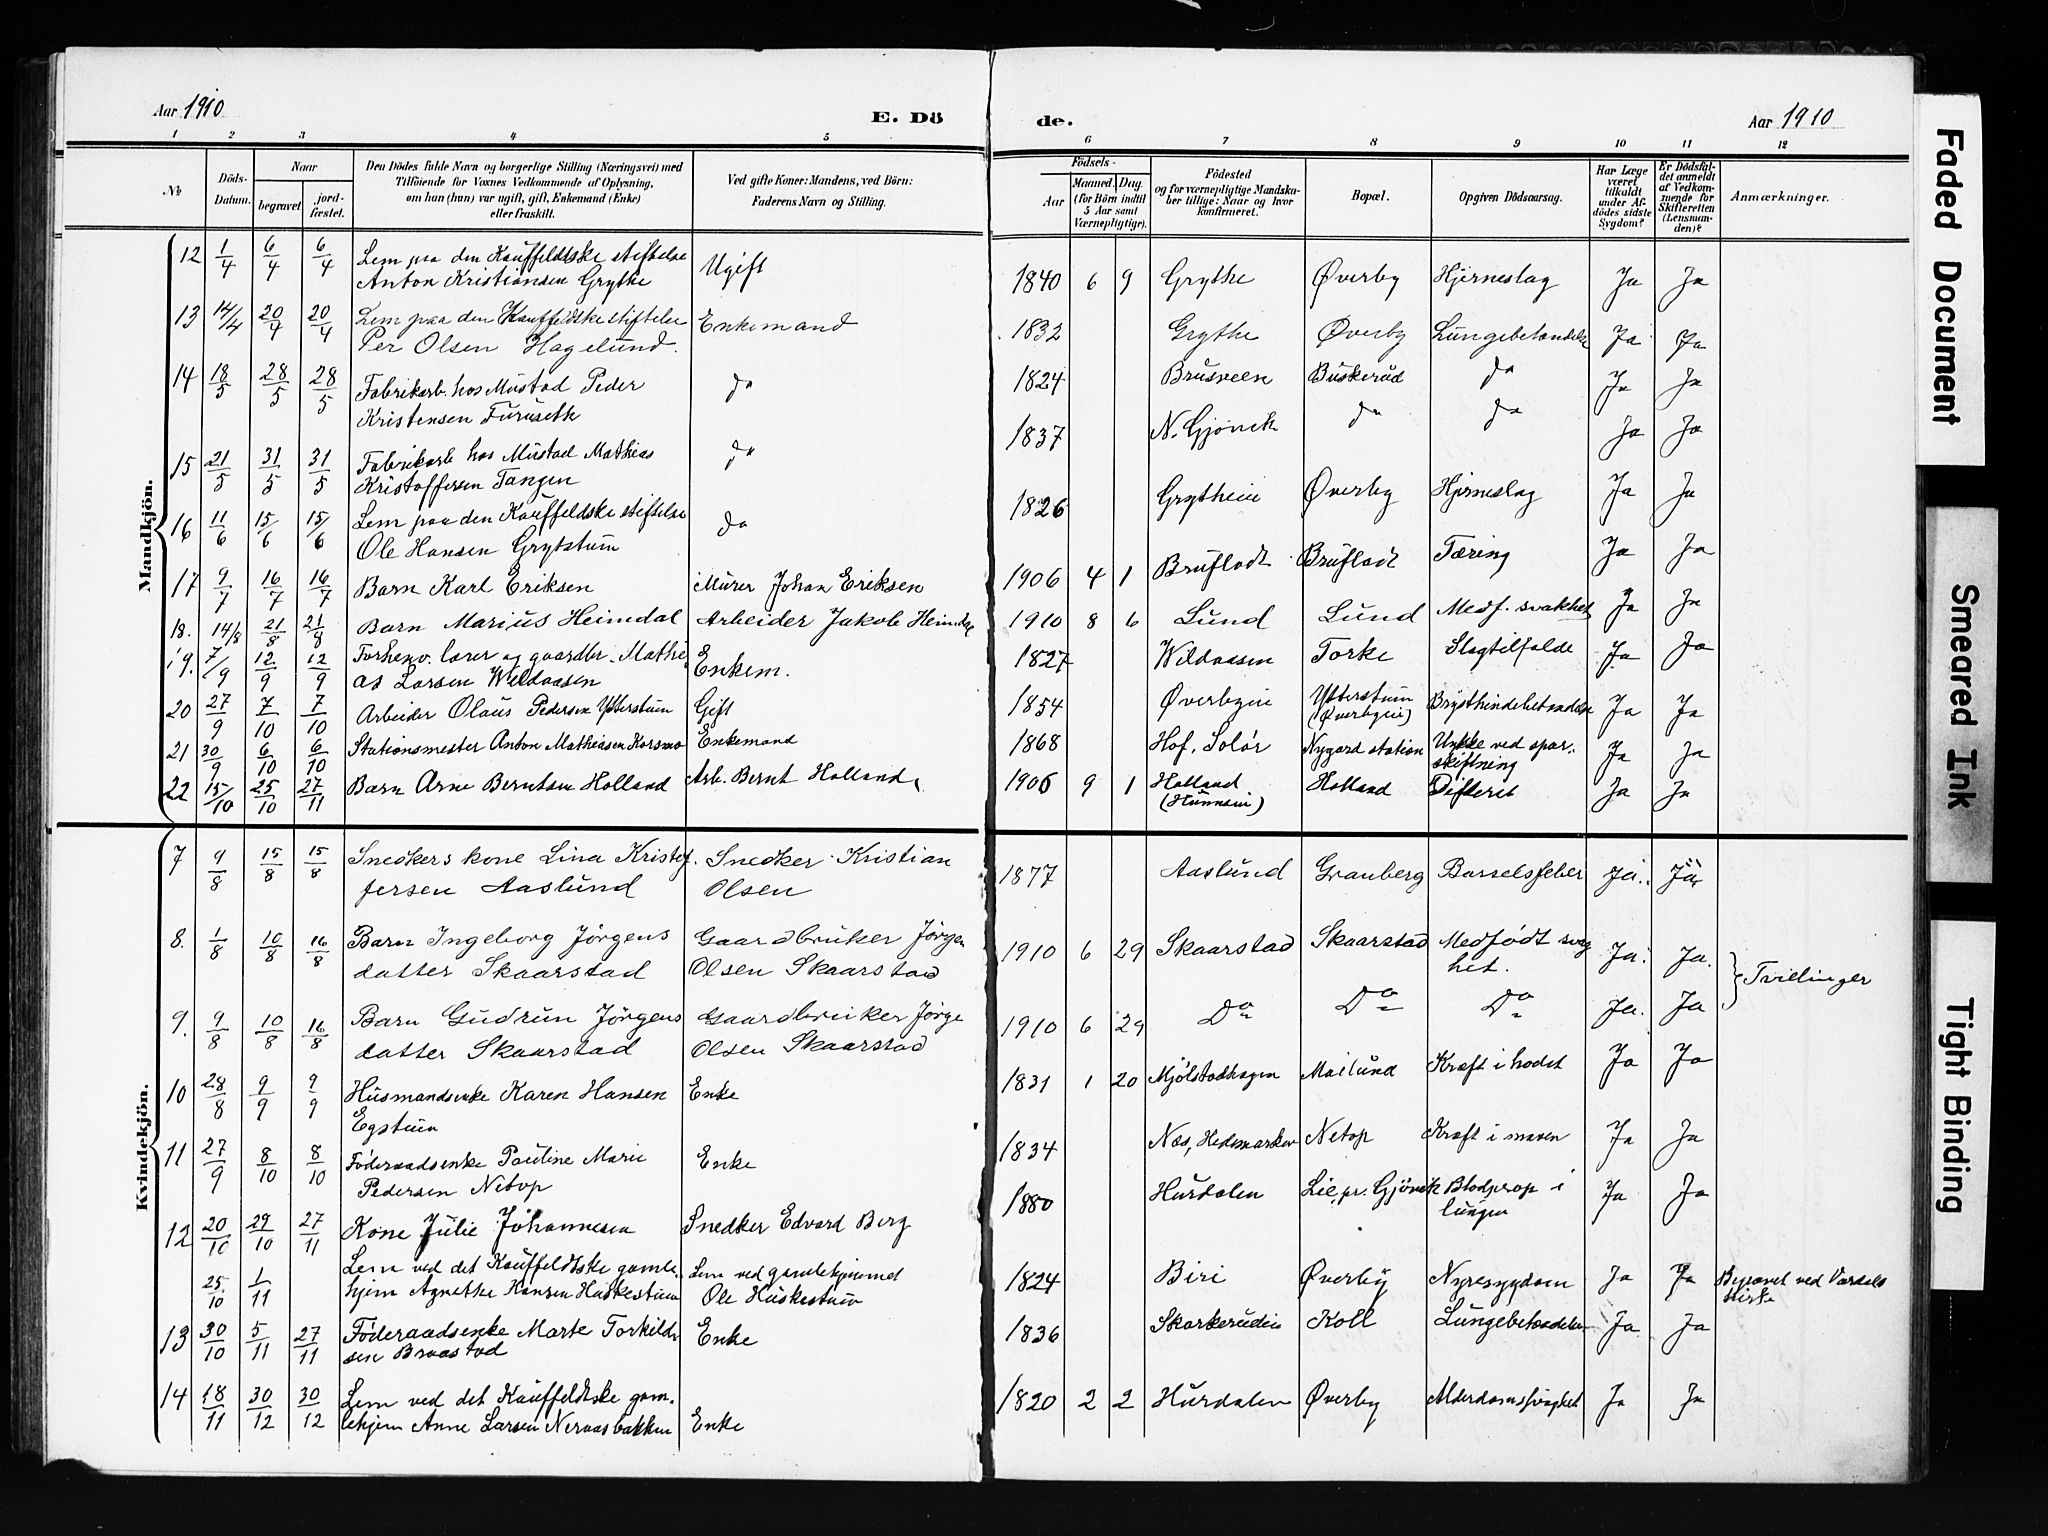 Aar 1910
E. Dö
de.
Aar 1910
1 2 3 4 5 6 7 8 9 10 11 12
No.
Döds-Datum.
Naar
begravet
jordfæstet.
Den Dödes fulde Navn og borgerlige Stilling (Næringsvei) med
Tilföiende for Voxnes Vedkommende af Oplysning,
om han (hun) var ugift, gift, Enkemand (Enke)
eller fraskilt.
Ved gifte Koner: Mandens, ved Börn:
Faderens Navn og Stilling.
Födsels-
Aar
Maaned. Dag.
(for Börn indtil
5 Aar samt
Værnepligtige).
Födested
og for værnepligtige Mandskaber tillige: Naar og hvor
konfirmeret.
Bopæl.
Opgiven Dödsaarsag.
Har Læge
været
tilkaldt
under Afdödes sidste
Sygdom?
Er Dödsfaldet anmeldt
af Vedkommende for
Skifteretten
(Lensmanden)?
Anmærkninger.
Mandkjön.
12 1/4 6/4 6/4 Lem paa den Kauffeldtske stiftelse
Anton Kristiansen Grythe Ugift 1840 6 9 Grythe Øverby Hjerneslag Ja Ja
13 14/4 20/4 20/4 Lem paa den Kauffeldtske stiftelse
Per Olsen Hagelund. Enkemand 1832 Grythe Øverby Lungebetændelse Ja Ja
14 18/5 28/5 28/5 Fabrikarb. hos Mustad Peder
Kristensen Furuseth do 1824 Brusveen Buskerud do Ja Ja
15 21/5 31/5 31/5 Fabrikarb hos Mustad Mathias
Kristoffersen Tangen do 1837 N. Gjövik do do Ja Ja
16 11/6 15/6 15/6 Lem paa den Kauffeldtske stiftelse
Ole Hansen Grytstuen do 1826 Grytheie Øverby Hjerneslag Ja Ja
17 9/7 16/7 16/7 Barn Karl Eriksen Murer Johan Eriksen 1906 4 1 Bruflodt Bruflodt Tæring Ja Ja
18. 14/8 21/8 21/8 Barn Marius Heimdal Arbeider Jakob Heimdal 1910 8 6 Lund Lund Medf. svakhet Ja Ja
19. 7/9 12/9 12/9 Forhenv. lærer og gaardbr. Mathi
as Larsen Wildaasen Enkem. 1827 Wildaasen Torke Slagtilfælde Ja Ja
20 27/9 7/10 7/10 Arbeider Olaus Pedersen Ytterstuen Gift 1854 Øverbyeie Ytterstuen
(Øverbyeie) Brysthindebetændelse Ja Ja
21 30/9 6/10 6/10 Stationsmester Anton Mathiasen Korsmo Enkemand 1868 Hof, Solör Nygard station Ulykke ved spor-
skiftning Ja Ja
22 15/10 25/10 27/11 Barn Arne Berntsen Holland Arb. Bernt Holland 1906 9 1 Holland
(Hunneie) Holland Difterit Ja Ja
Kvindekjön.
7 9/8 15/8 15/8 Snedkers kone Lina Kristof
fersen Aaslund Snedker Kristian
Olsen 1877 Aaslund Granberg Barselsfeber Ja. Ja
8. 1/8 10/8 16/8 Barn Ingeborg Jörgens
datter Skaarstad Gaardbruker Jörgen
Olsen Skaarstad 1910 6 29 Skaarstad Skaarstad Medfødt svag
het. Ja. Ja. } Tvillinger
9. 9/8 10/8 16/8 Barn Gudrun Jörgens
datter Skaarstad Gaardbruker Jörge
Olsen Skaarstad 1910 6 29 Do Do Do Ja. Ja
10 28/8 9/9 9/9 Husmandsenke Karen Hansen
Egstuen Enke 1831 1 20 Mjölstadhagen Mailund Kræft i hodet Ja Ja
11 27/9 8/10 8/10 Föderaadsenke Pauline Marie
Pedersen Netop Enke 1834 Næs, Hedemarken Netop Kræft i maven Ja Ja
12 20/10 29/10 27/11 Kone Julie Johannesen Snedker Edvard Berg 1880 Hurdalen Lie, pr. Gjövik Blodprop i
lungen Ja Ja
25/10 1/11 Lem ved det Kauffeldtske gamle
hjem Agnethe Hansen Huskestuen Lem ved gamlehjemmet
Ole Huskestuen 1824 Biri Øverby Nyresygdom Ja Ja Begravet ved Vardals
kirke
13 30/10 5/11 27/11 Föderaadsenke Marte Torkild
sen Braastad Enke 1836 Skarkerudeie Koll Lungebetændelse Ja Ja
14 18/11 30/12 30/12 Lem ved det Kauffeldtske gam-
lehjem Anne Larsen Neraasbakken Enke 1820 2 2 Hurdalen Øverby Alderdomssvaghet Ja Ja
Faded Document
Smeared Ink
Tight Binding